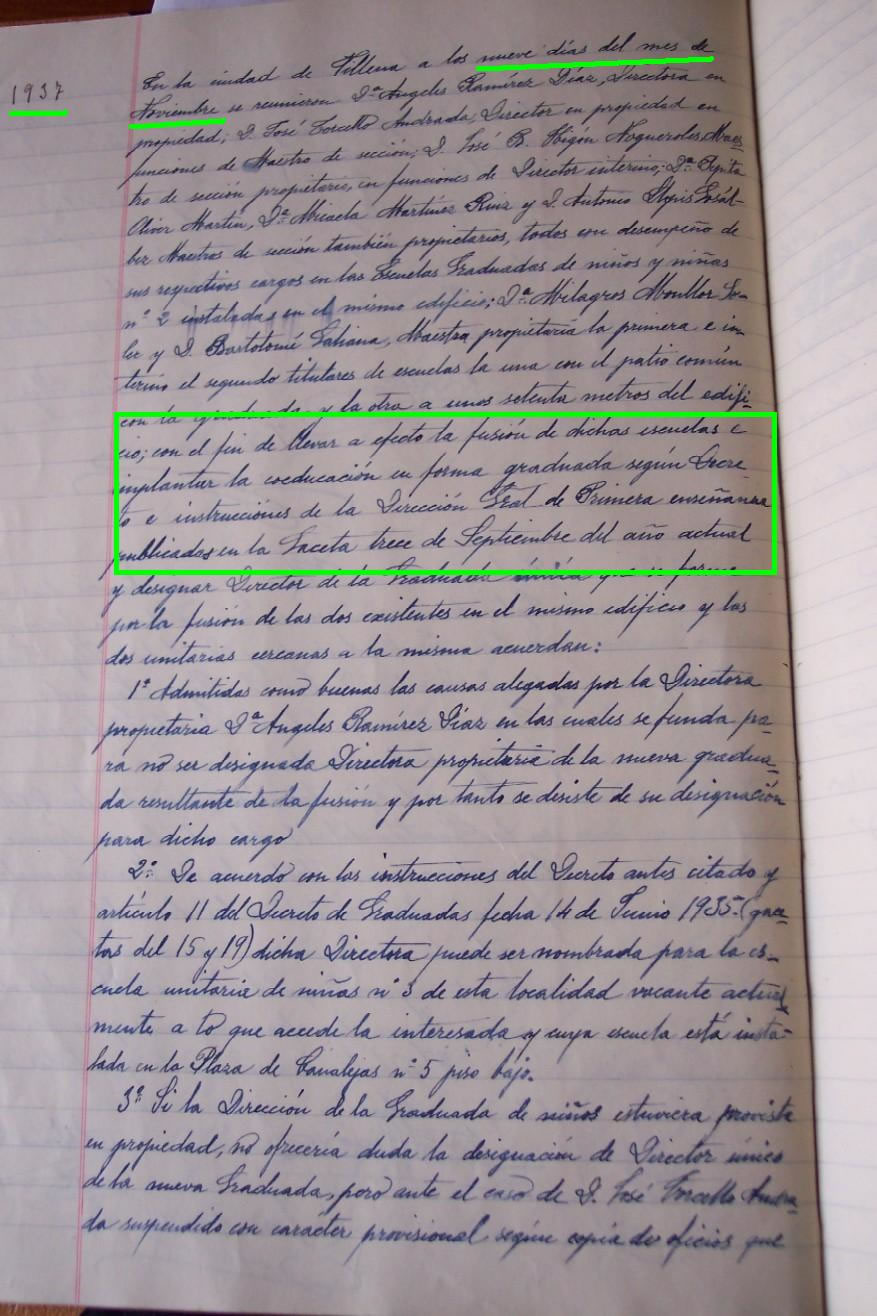 1937
En la ciudad de Villena a los nueve días del mes de
Noviembre se reunieron Dª Angeles Ramírez Díaz, Directora en
propiedad; D. José Torcello Andrada, Director en propiedad en
funciones de Maestro de sección; D. José B. Nogueroles, Maes-
tro de sección propietario, en funciones de Director interino; Dª Pepita
Oliver Martín, Dª Micaela Martínez Ruiz y D. Antonio
ber Maestros de sección también propietarios, todos con desempeño de
sus respectivos cargos en las Escuelas Graduadas de niños y niñas
nº 2 instaladas en el mismo edificio; Dª Milagros Moullor So-
ler y D. Bartolomé Galiana, Maestra propietaria la primera e in-
terino el segundo titulares de escuelas la una con el patio común
con la graduada y la otra a unos setenta metros del edifi-
cio; con el fin de llevar a efecto la fusión de dichas escuelas e
implantar la coeducación en forma graduada según Decre
to e instrucciónes de la Dirección Gral de Primera enseñanza
publicadas en la Gaceta trece de Septiembre del año actual
y designar Director de la Graduada única que se forma
por la fusión de las dos existentes en el mismo edificio y las
dos unitarias cercanas a la misma acuerdan:
1º Admitidas como buenas las causas alegadas por la Directora
propietaria Dª Angeles Ramírez Díaz en las cuales se funda pa-
ra no ser designada Directora propietaria de la nueva gradua-
da resultante de la fusión y por tanto se desiste de su designación
para dicho cargo
2º De acuerdo con las instrucciones del Decreto antes citado y
artículo 11 del Decreto de Graduadas fecha 14 de Junio 1935 (gace-
tas del 15 y 19) dicha Directora puede ser nombrada para la es-
cuela unitaria de niñas nº 3 de esta localidad vacante actual
mente a lo que accede la interesada y cuya escuela está insta-
lada en la Plaza de Canalejas nº 5 piso bajo.
3º Si la Dirección de la Graduada de niños estuviera provista
en propiedad, no ofrecería duda la designación de Director único
de la nueva Graduada, pero ante el caso de D. José Torcello Andra-
da suspendido con carácter provisional según copia de oficios que